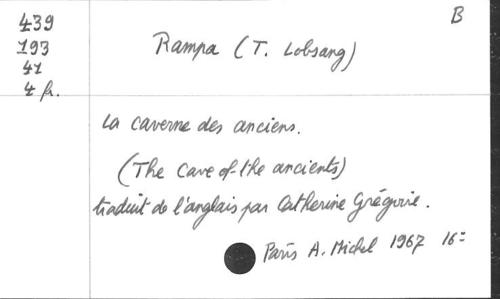 439
193
41
4 fr.
B
Rampa (T. Lobsang)
La caverne des anciens.
(The Cave of the ancients)
traduit de l'anglais par Catherine Grégoire.
Paris A. Michel 1967 16=